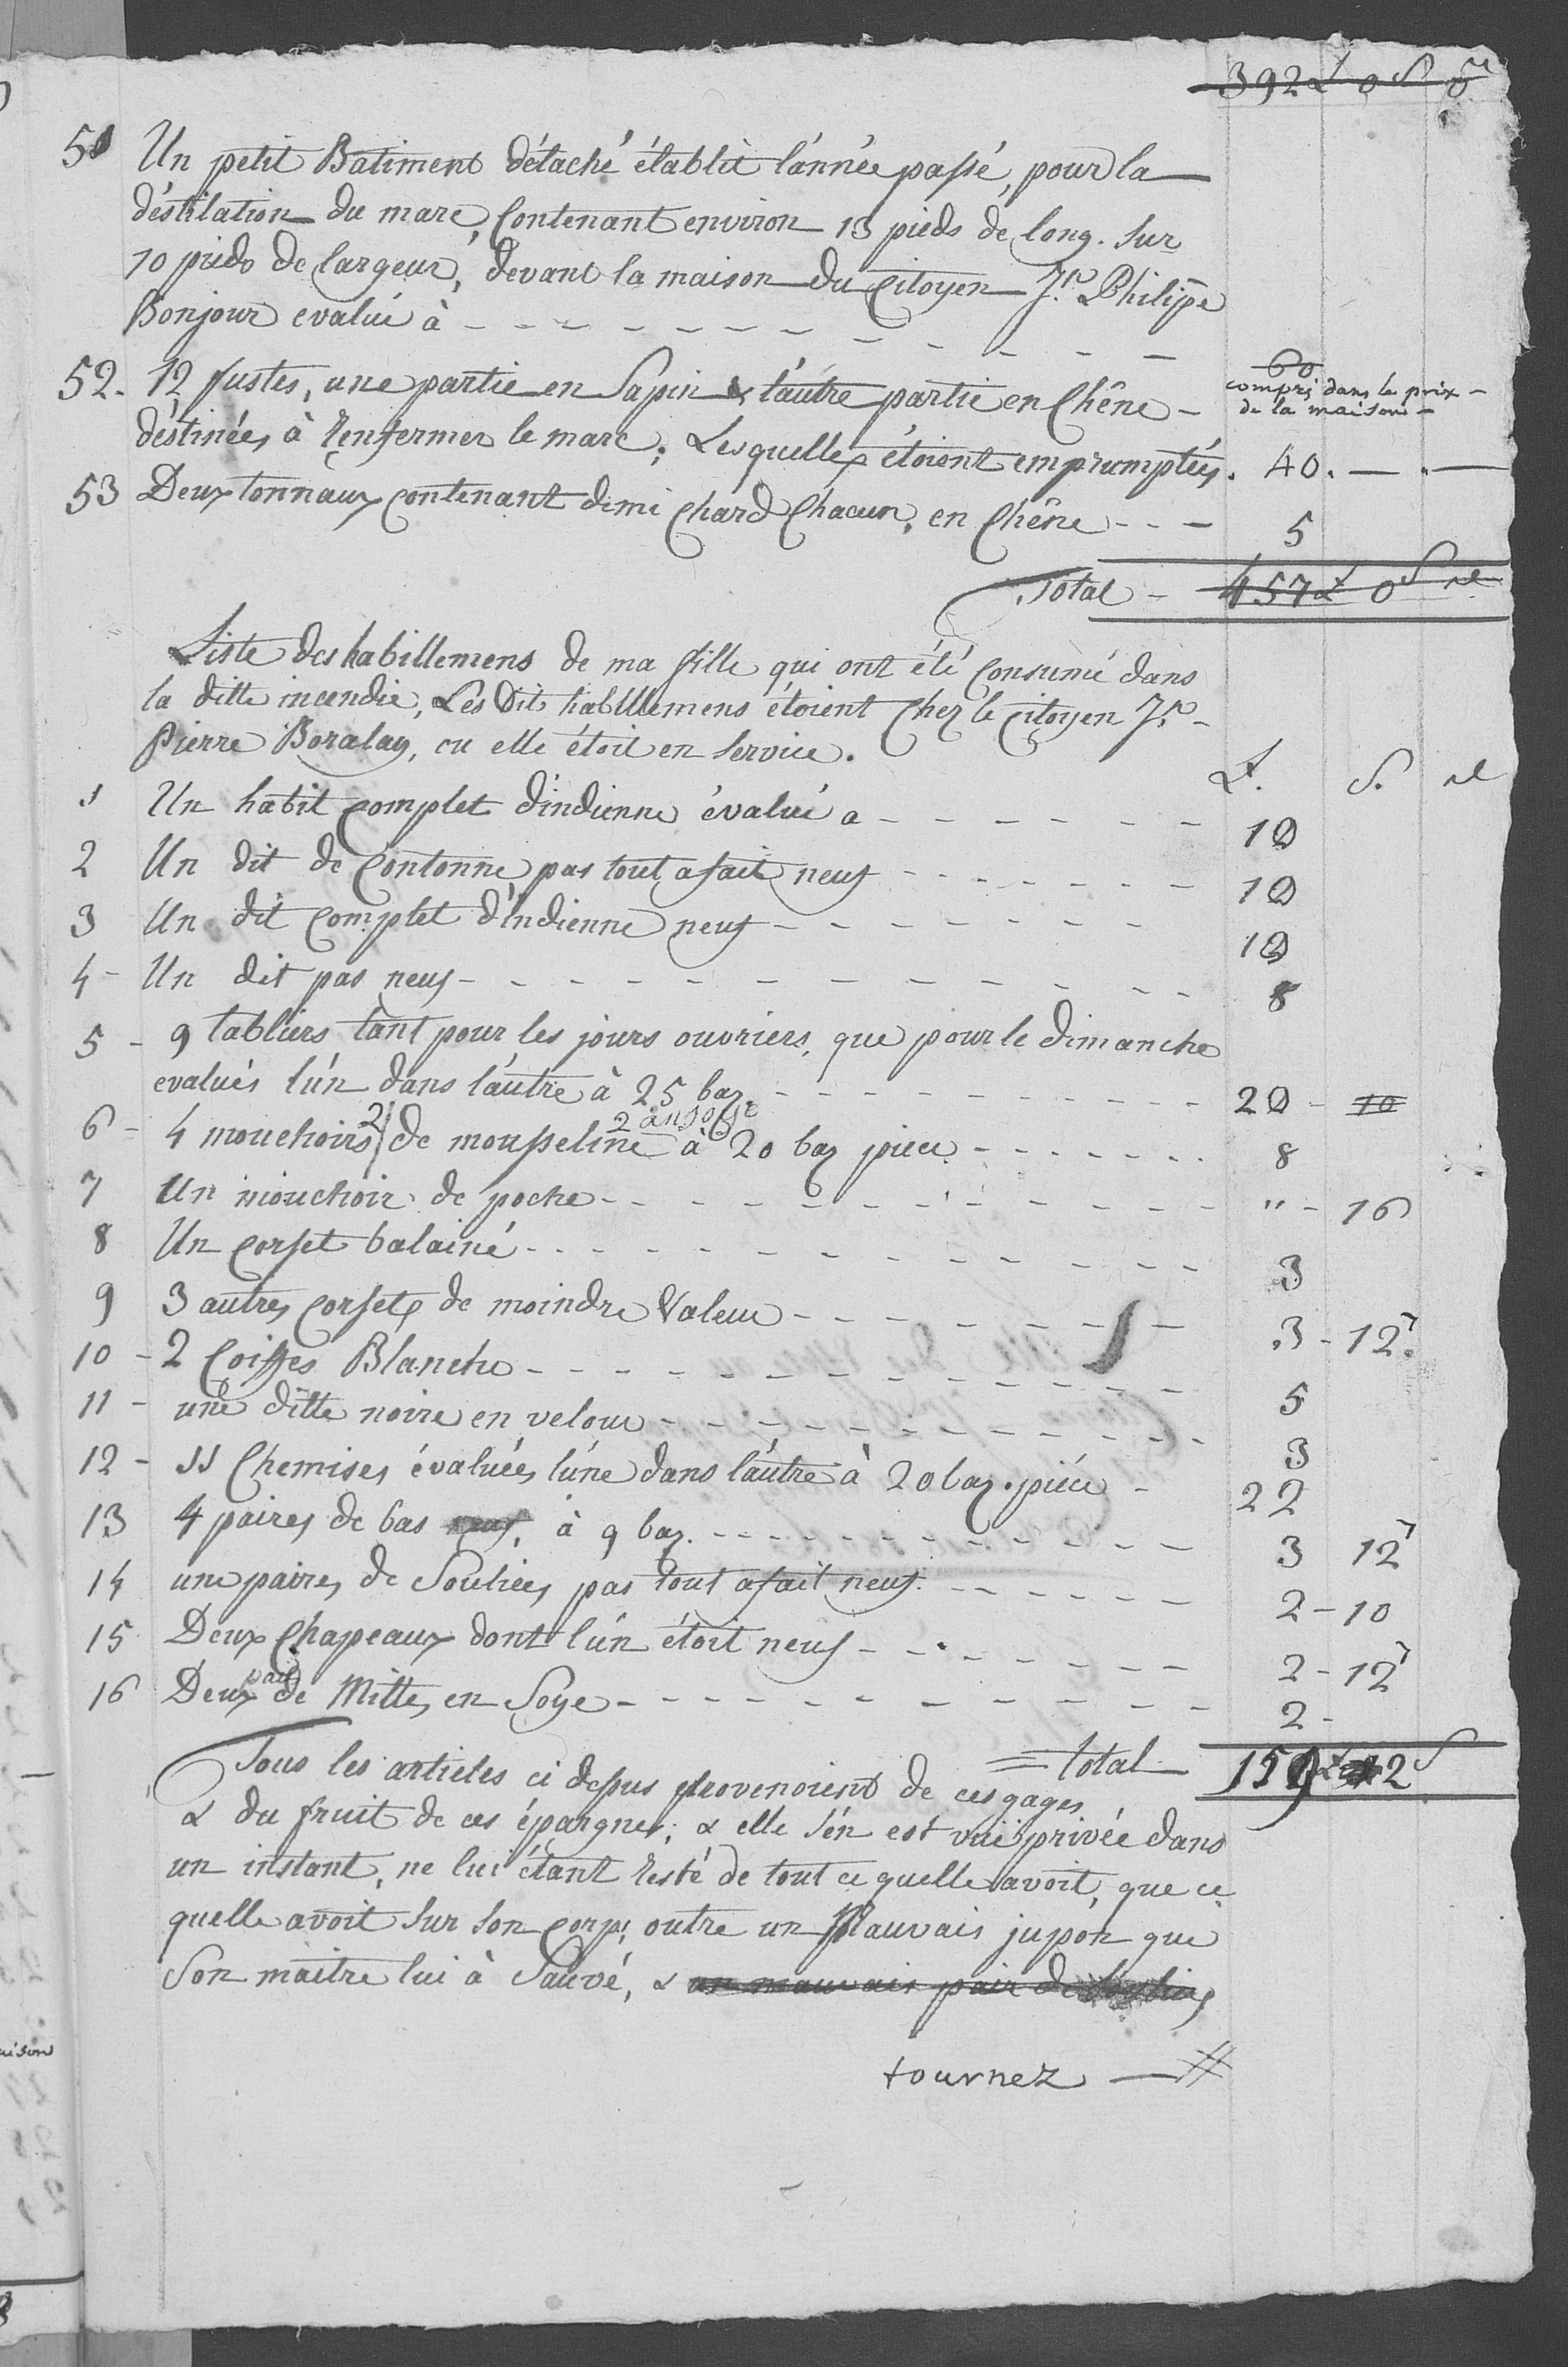 392 L 0 S 0 d
51 Un petit Batiment détaché établit l'année passé, pour la
déstilation du marc, Contenant environ 13 pieds de long. Sur
10 pieds de largeur, devant la maison du Citoyen Jn Philipe
Bonjour evalué à - - - - - - - - - - - - 60
compris dans le prix -
de la maison -
52. 12 fustes, une partie en Sapin & l'autre partie en Chêne -
déstinées à renfermer le marc; Lesquelles étoient empruntées. 40. — . —
53 Deux tonnaux contenant demi Chard Chacun, en Chêne - - - 5
Total - 457 L 0 S d
Liste des habillemens de ma fille qui ont été Consumé dans
la ditte incendie, Les Dit habillemens étoient Chez le Citoyen Jn -
Pierre Boralay, ou elle étoit en Service.
L. S. d
1 Un habit Complet d'indienne évalué a - - - - - - 10
2 Un dit de Contonne, pas tout a fait neuf - - - - - - 10
3 Un dit Complet d'indienne neuf - - - - - - - 12
4 - Un dit pas neuf - - - - - - - - - - - - 8
5 - 9 tabliers tant pour les jours ouvriers, que pour le dimanche
evalués l'un dans l'autre à 25 baz. - - - - - - - - - - 20 - 10
2 2 an Soye
6 - 4 mouchoirs de mousseline à 20 baz piece - - - - - - - 8
7 Un mouchoir de poche - - - - - - - - - - - " - 16
8 Un Corset balainé - - - - - - - - - - - - 3
9 3 autres Corsets de moindre Valeur - - - - - - - 3 - 12.
10 - 2 Coiffes Blanche - - - - - - - - - - - - 5
11 - une ditte noire en velour - - - - - - - - - - 3
12 - 11 Chemises évaluées l'une dans l'autre à 20 baz. piéce - 22
13 4 paires de bas neuf, à 9 baz. - - - - - - - - - - 3 12
14 une paires de Souliers pas tout a fait neuf. - - - - - 2 - 10
15 Deux Chapeaux dont l'un étoit neuf - - - - - - - 2 - 12
pair
16 Deux de Mittes en Soye - - - - - - - - - - 2 -
= total 159 L 2 S
Tous les articles ci dessus provenoient de ces gages
& du fruit de ces épargnes; & elle s'en est vuë privée dans
un instant, ne lui étant resté de tout ce quelle avoit, que ce
quelle avoit Sur Son Corps, outre un Mauvais jupon que
Son maitre lui à Sauvé, & un mauvais pair de Souliers
tournez —